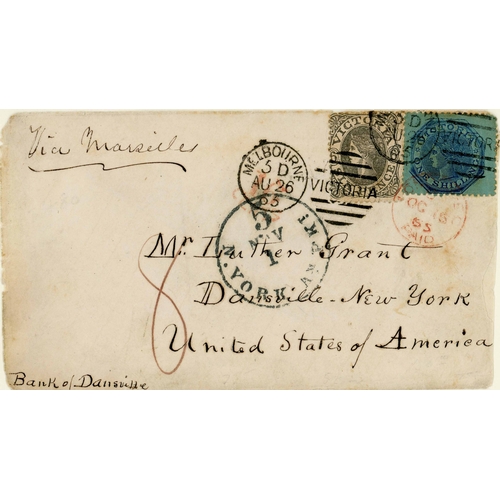 Via Marseilles
MELBOURNE
3 D
AU 26
65
VICTORIA
VICTORIA
VICTOR
OC 18
65
PAID
5
NOV
1
N. YORK AM. PKT
8
Mr. Luther Grant
Dansville - New York
United States of America
Bank of Dansville